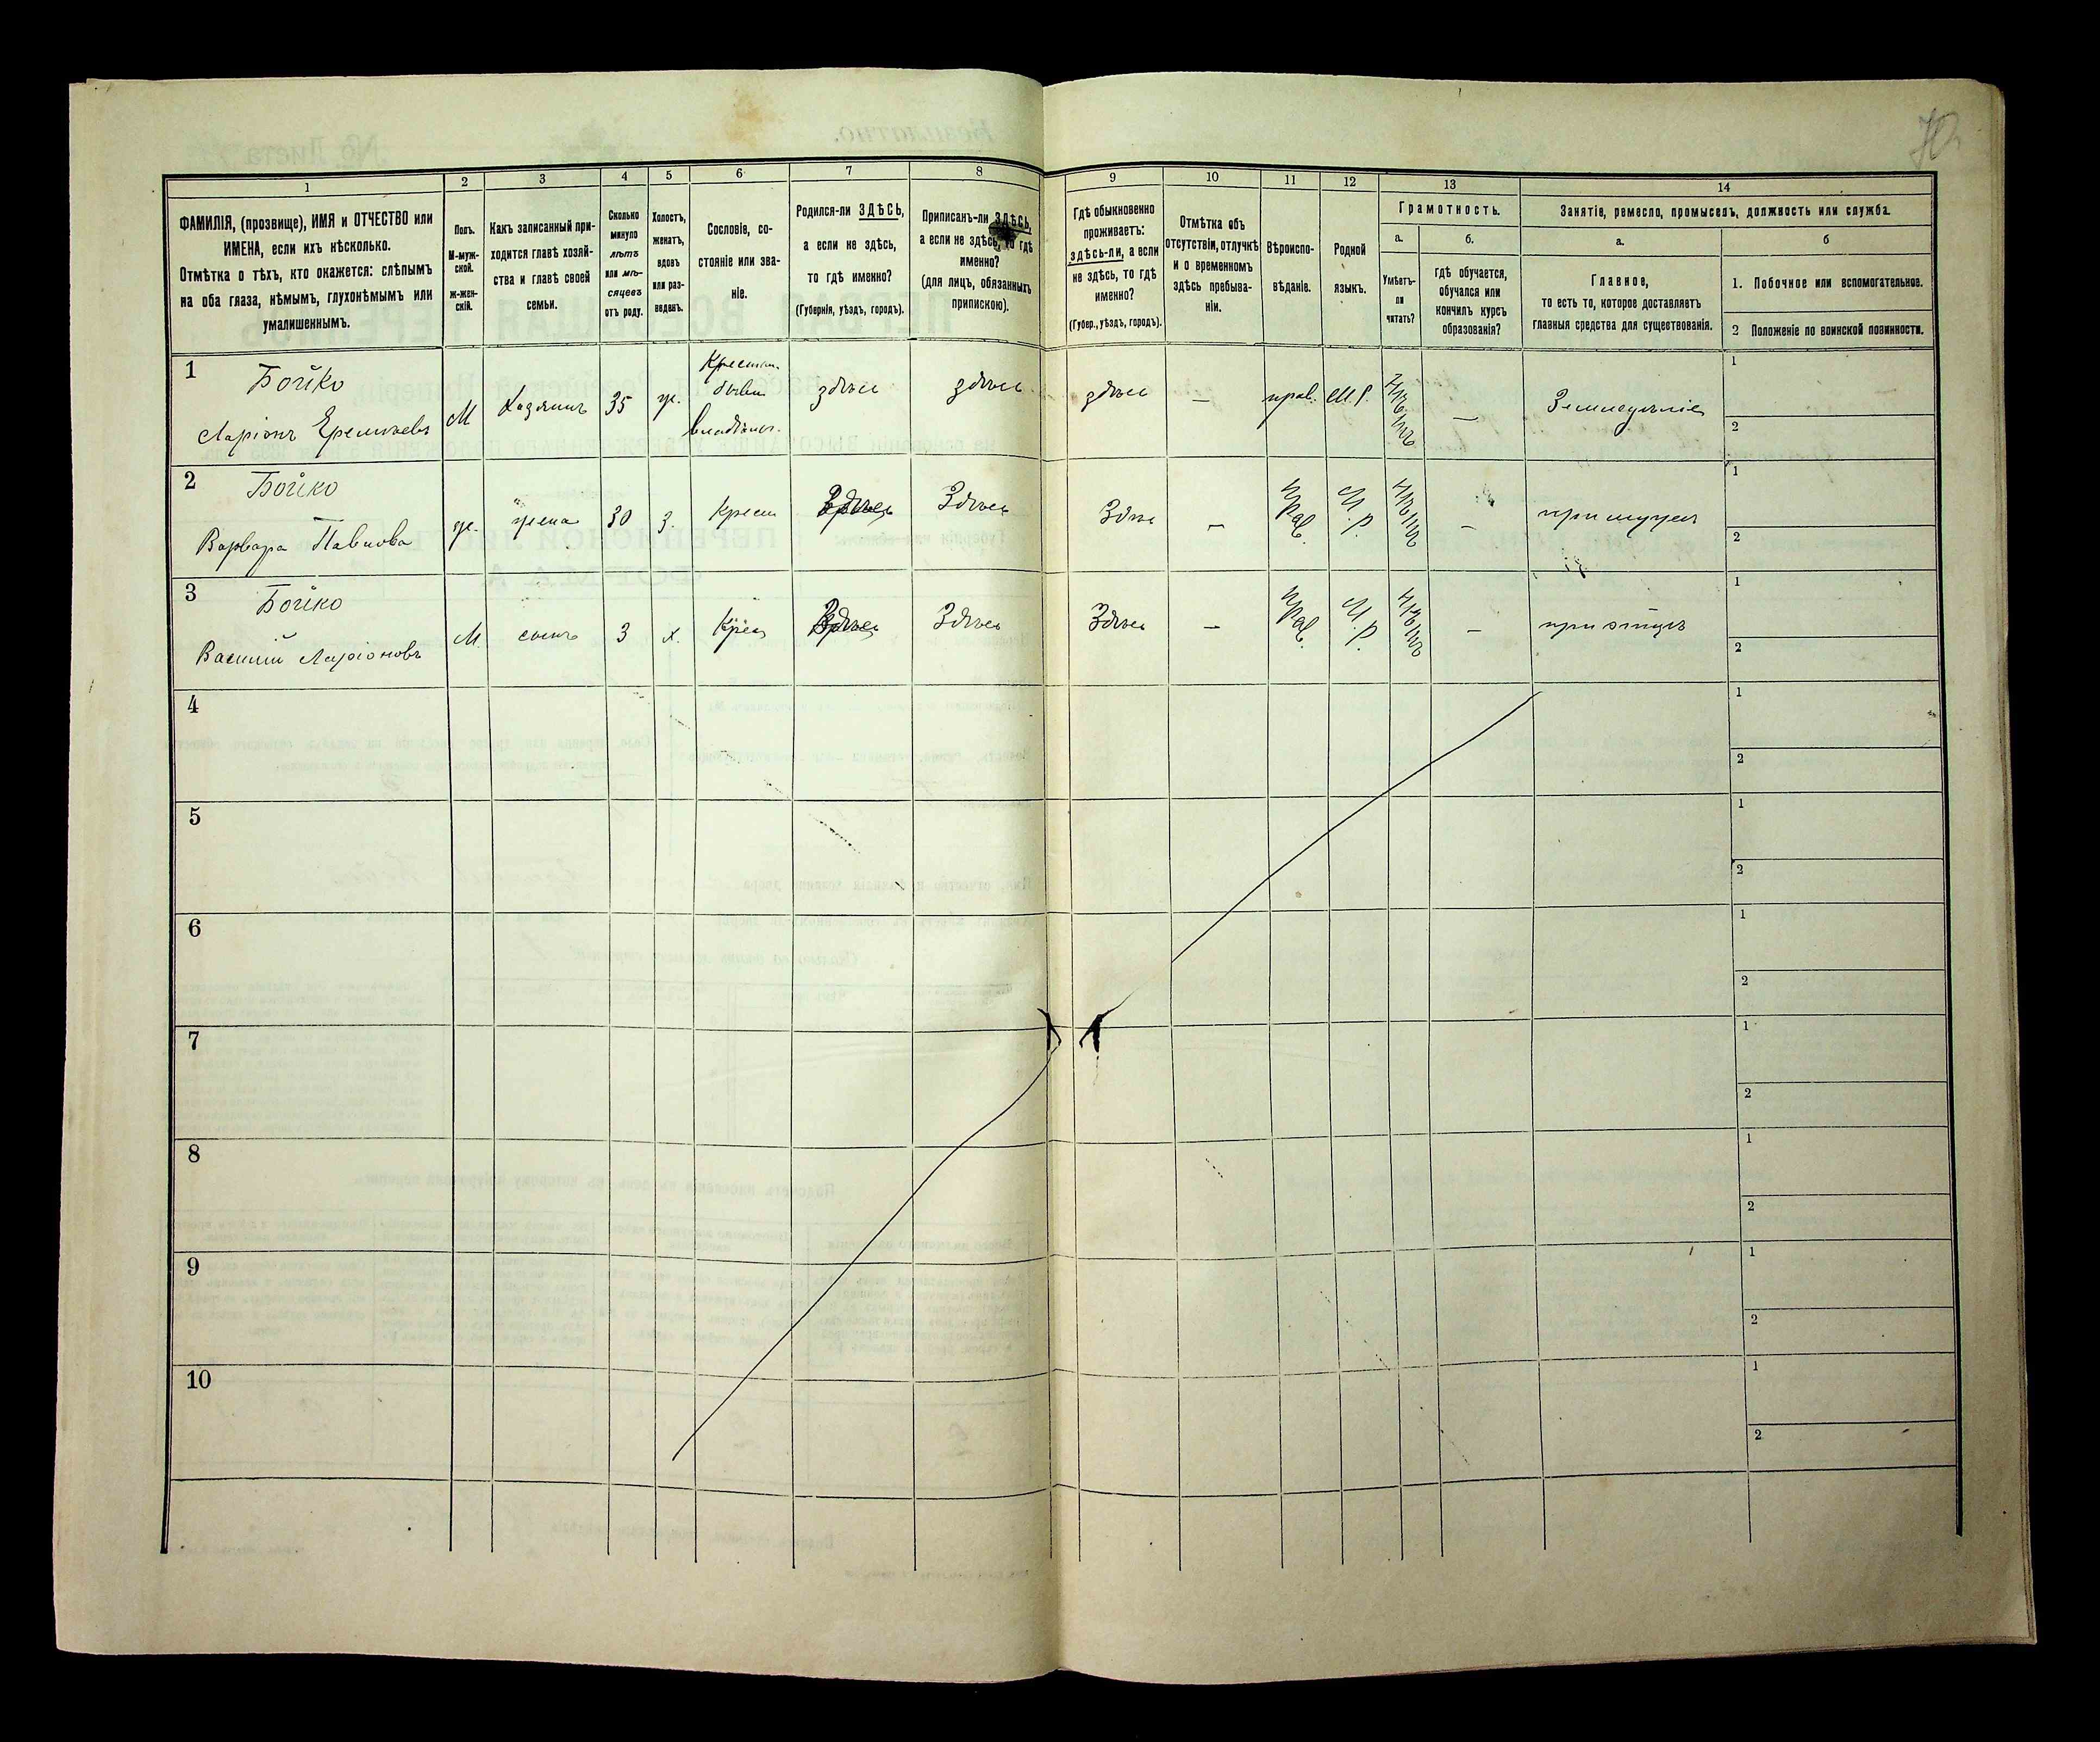 70
1
2
3
4
5
6
7
8
9
10
11
12
13
14
ФАМИЛІЯ, (прозвище), ИМЯ и ОТЧЕСТВО или
ИМЕНА, если ихъ нѣсколько.
Отмѣтка о тѣхъ, кто окажется: слѣпымъ
на оба глаза, нѣмымъ, глухонѣмымъ или
умалишеннымъ.
Полъ.
М-муж-
ской.
ж-жен-
скій.
Какъ записанный при-
ходится главѣ хозяй-
ства и главѣ своей
семьи.
Сколько
минуло
лѣтъ
или мѣ-
сяцевъ
отъ роду.
Холостъ,
женатъ,
вдовъ
или раз-
веденъ.
Сословіе, со-
стояніе или зва-
ніе.
Родился-ли ЗДѢСЬ,
а если не здѣсь,
то гдѣ именно?
(Губернія, уѣздъ, городъ).
Приписанъ-ли ЗДѢСЬ,
а если не здѣсь, то гдѣ
именно?
(для лицъ, обязанныхъ
припискою).
Гдѣ обыкновенно
проживаетъ:
здѣсь-ли, а если
не здѣсь, то гдѣ
именно?
(Губер., уѣздъ, городъ).
Отмѣтка объ
отсутствіи, отлучкѣ
и о временномъ
здѣсь пребыва-
ніи.
Вѣроиспо-
вѣданіе.
Родной
языкъ.
Грамотность.
а.
Умѣетъ-
ли
читать?
б.
гдѣ обучается,
обучался или
кончилъ курсъ
образованія?
Занятіе, ремесло, промыселъ, должность или служба.
а.
Главное,
то есть то, которое доставляетъ
главныя средства для существованія.
б
1. Побочное или вспомогательное.
2 Положеніе по воинской повинности.
1
Бойко
Ларіонъ Еремѣевъ
М
Хозяинъ
35
ж.
Крестьян.
бывш.
владѣльч.
здѣсь
здѣсь
здѣсь
—
прав.
М.Р.
нѣтъ
—
Земледѣліе
1
2
2
Бойко
Варвара Павлова
ж.
жена
30
з.
Крест
Здѣсь
Здѣсь
Здѣсь
—
Прав.
М.Р.
нѣтъ
—
при мужѣ
1
2
3
Бойко
Василій Ларіоновъ
М.
сынъ
3
х.
Крест
Здѣсь
Здѣсь
Здѣсь
—
Прав.
М.Р.
нѣтъ
—
при отцѣ
1
2
4
1
2
5
1
2
6
1
2
7
1
2
8
1
2
9
1
2
10
1
2